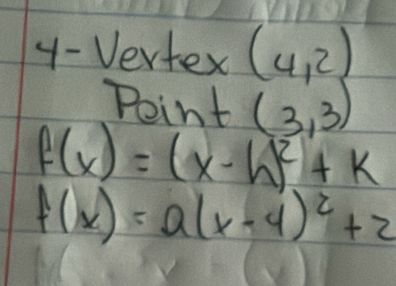 4-Vertex (4,2)
Point (3,3)
f(x) = (x-h)² + K
f(x) = a(x-4)² + 2